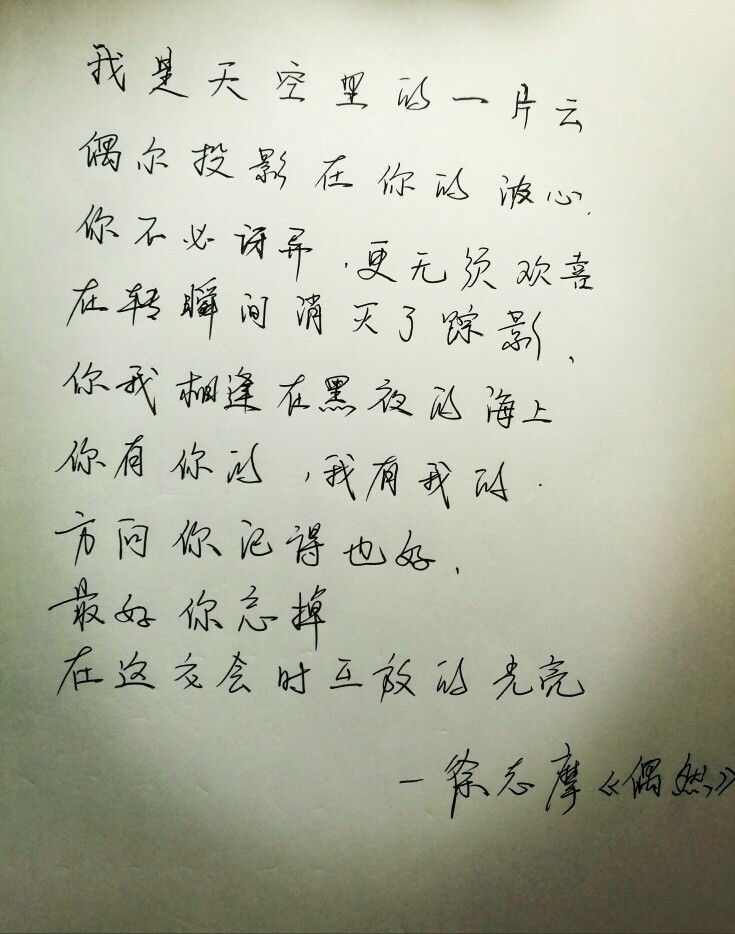 我是天空里的一片云
偶尔投影在你的波心.
你不必讶异,更无须欢喜
在转瞬间消灭了踪影,
你我相逢在黑夜的海上
你有你的,我有我的.
方向你记得也好,
最好你忘掉
在这交会时互放的光亮
—徐志摩《偶然》